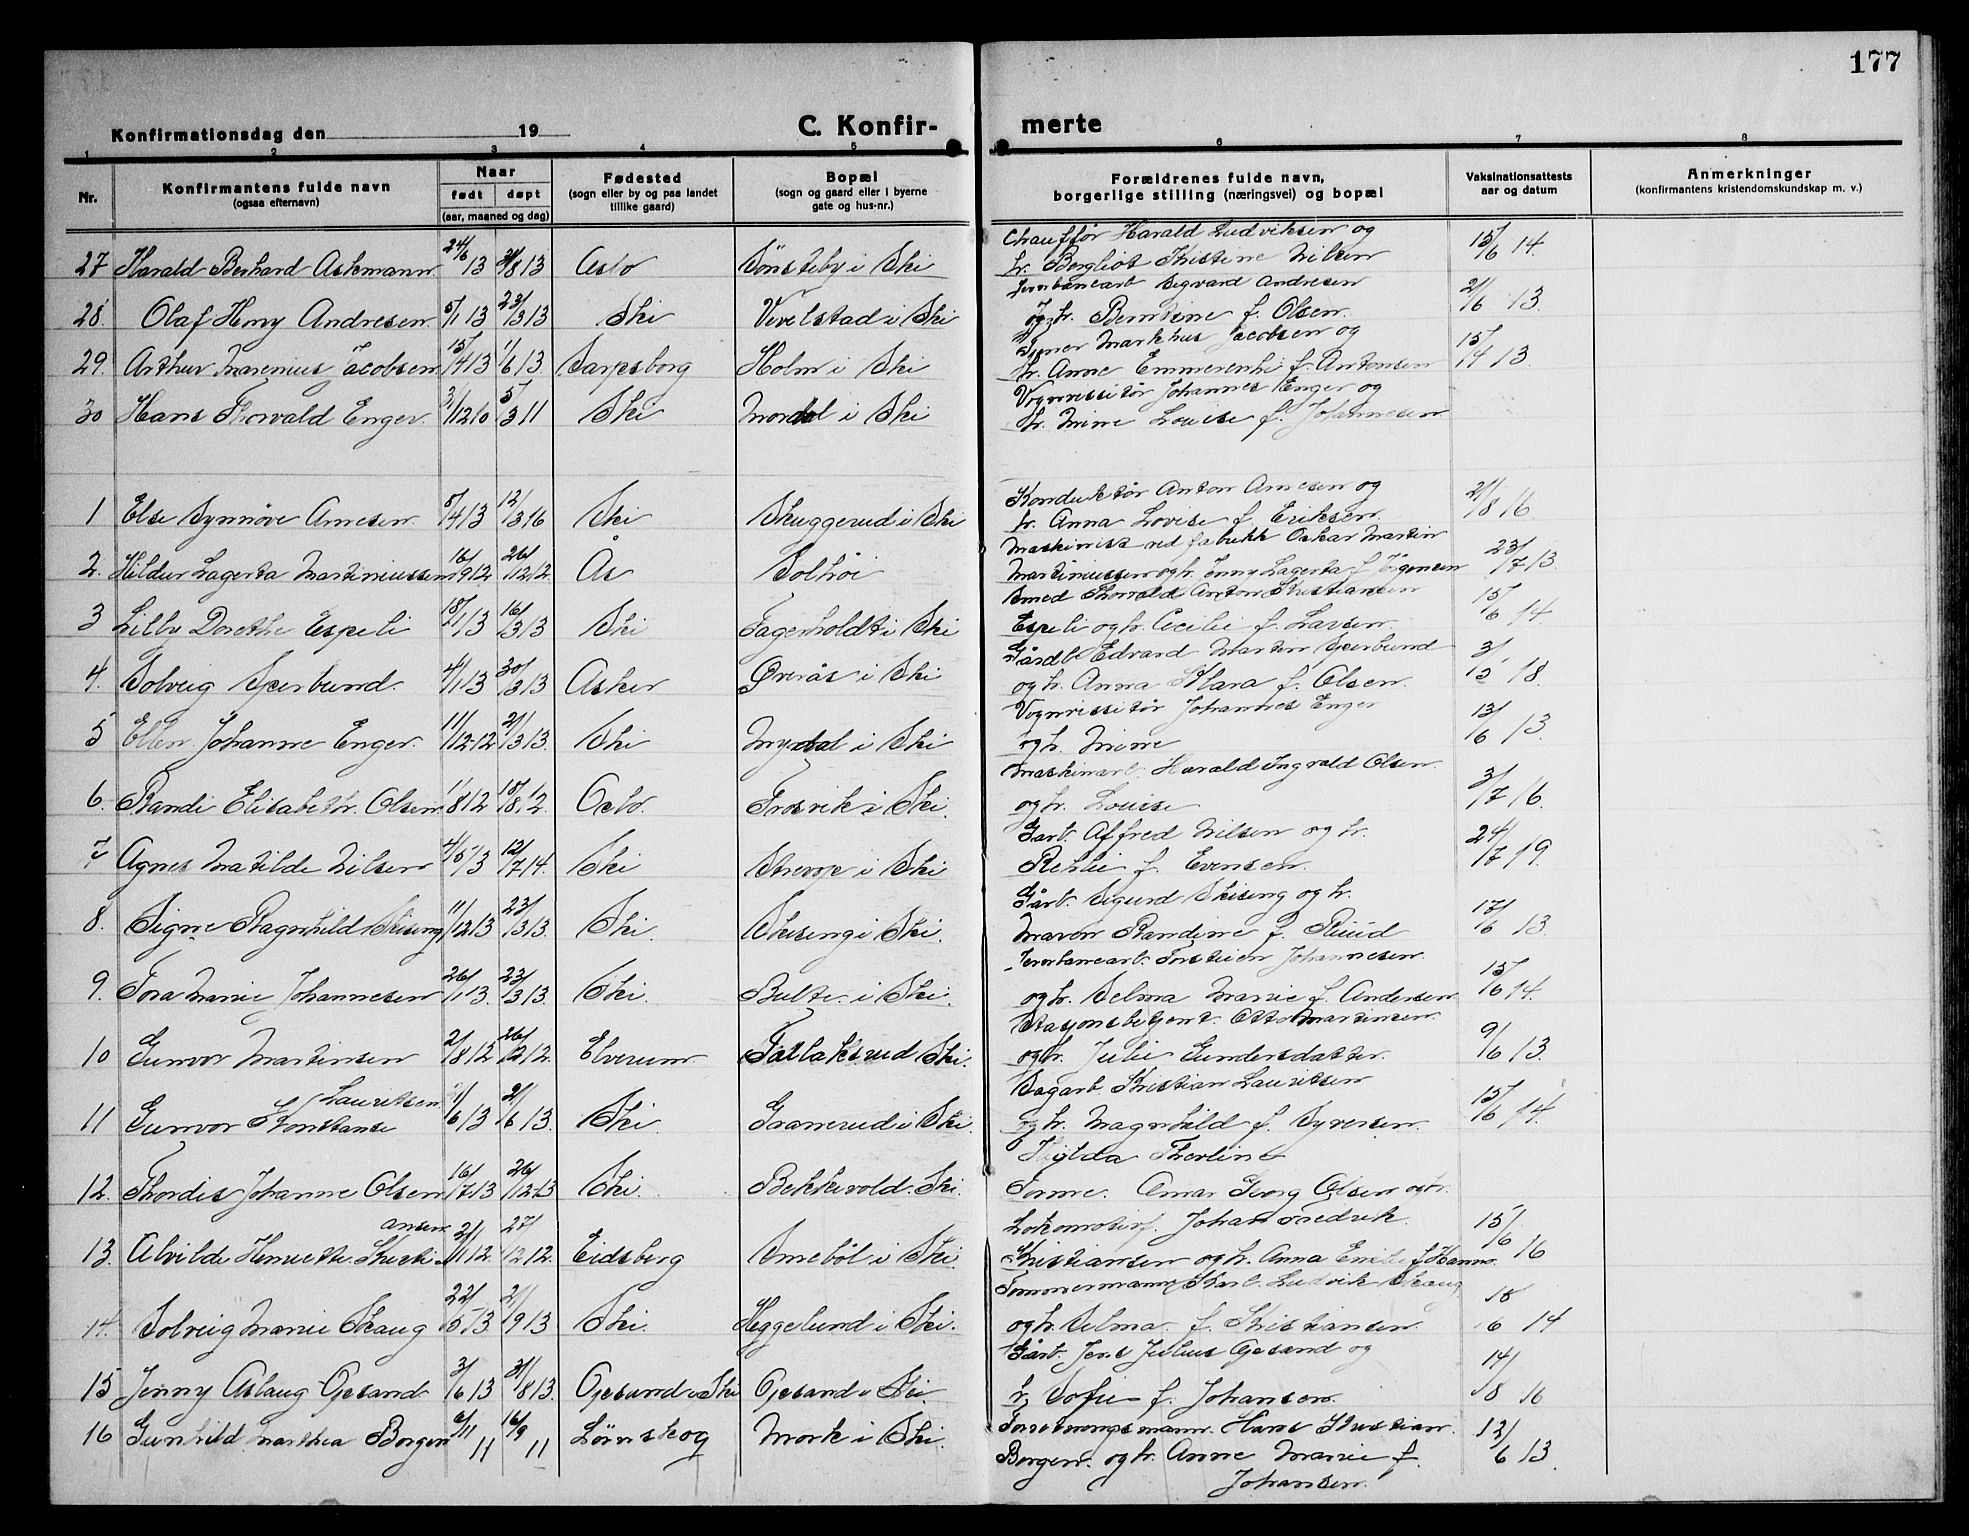 177
Konfirmationsdag den 19
C. Konfir-
merte
1 2 3 4 5 6 7 8
Nr. Konfirmantens fulde navn (ogsaa efternavn)
Naar
født døpt
(aar, maaned og dag)
Fødested
(sogn eller by og paa landet
tillike gaard)
Bopæl
(sogn og gaard eller i byerne
gate og hus-nr.)
Forældrenes fulde navn,
borgerlige stilling (næringsvei) og bopæl
Vaksinationsattests
aar og datum
Anmerkninger
(konfirmantens kristendomskundskap m. v.)
Chauffør Harald Ludviksen og
27 Harald Berhard Askmann 24/6 13 8 13 Oslo Sønsteby i Ski
h. Borgliot Kristine Nilsen 15/6 14.
Jernbanearb Sigvard Andresen
28. Olaf Henry Andresen 5/1 13 23/3 13 Ski Vevelstad i Ski
og h. Berntine f. Olsen. 21/6 13.
Markhus Jacobsen og
29. Arthur Marenius Jacobsen 15/4 13 1/6 13 Sarpsborg Holm i Ski
h. Anne Emmerenhi f. Antonsen 15/4 13.
Vognvissitør Johannes Enger og
30 Hans Thorvald Enger. 31/12 10 5/3 11 Ski i Ski
h. Mine Louise f. Johannesen
Konduktør Anton Arnesen og
1 Else Synnøve Arnesen. 5/4 13 12/3 16 Ski Skuggerud i Ski
h. Anna Lovise f. Eriksen. 21/8 16.
Maskinist ved fabrikk Oskar Martin
2. Hildur Lagerta Martiniussen 16/9 12 26/12 12. Ås Solhøi
Martiniussen og h. Jenny Lagerta f Jørgensen 23/7 13.
Smed Thorvald Anton Kristiansen
3 Lilly Dorethe Espeli 18/1 13 16/3 13 Ski Fagerholdt i Ski
Espeli og h. Cecilie f. Larsen. 15/6 14.
Gårdb. Edvard Martin Sperbund
4. Solveig Sperbund. 4/1 13 30/3 13 Asker Øverås i Ski
og h. Anna Klara f. Olsen. 3/15 18.
Vognvissitør Johannes Enger
5 Ellen Johanne Enger. 11/12-12 21/3 13. Ski i Ski
og h. Mine 13/6 13.
Maskinarb. Harald Ingvald Olsen.
6. Randi Elisabeth. Olsen 1/8 12 18/8 12. Oslo. Frosvik i Ski.
og h. Louise 3/7 16.
Garb. Alfred Nilsen og h.
7 Agnes Matilde Nilsen 4/5 13 12/7 14. Ski i Ski
f. Evensen. 24/7 19.
Gårb. Sigurd Skiseng og h.
8. Signe Ragnhild Skiseng 11/12 13 23/3 13. Ski. Skiseng i Ski.
Maren Randine f. Ruud 17/6 13.
Jernbanearb. Torstein Johannesen.
9. Tora Marie Johannesen 26/1 13. 23/3 13. Ski. Bulte. i Ski.
og h. Selma Marie f. Andersen 15/6 14.
Stasjonsbetjent. Otto Martinsen.
10 Gunvor Martinsen 2/8 12 26/12 12. Elverum Taslaksrud Ski.
og h. Julie Gundersdatter. 9/6 13.
Sagarb Kristian Lauritsen
Lauritsen
11 Gunvor Konstanse 1/6 13 21/6 13. Ski. Gaanerud i Ski.
og h. Magnhild f. Syversen. 15/6 14.
Hilda Therline
12. Thordis Johanne Olsen 16/7 13 26/12-13 Ski. Bekkevold. Ski.
Omar Georg Olsen og h.
Lokomotivf. Johan Fredrik.
ansen
13. Alvilde Henriette Kristi- 2/11 12. 27/12 12. Eidsberg Smebøl i Ski.
Kristiansen og h. Anna Emilie f. Hanno. 15/6 16
Tømmermann Karl. Ludvik Skaug
14. Solveig Marie Skaug 22/5 13. 21/9 13 Ski. Heggelund i Ski.
og h. Selma f. Kristiansen. 18/6 14
Gårb. Jens Julius Gjesand og
15 Jenny Aslaug Gjesand 3/6 13 31/8 13. Gjesund i Ski Gjesand i Ski.
h. Sofie f. Johansen. 14/8 16
Forretningsmann. Hans Kristian.
16 Gunhild Marthea Borgen 6/11 11 16/9 11 Lørnskog Mork i Ski.
Borgen. og h. Anne Marie f. 12/6 13.
Johansen.